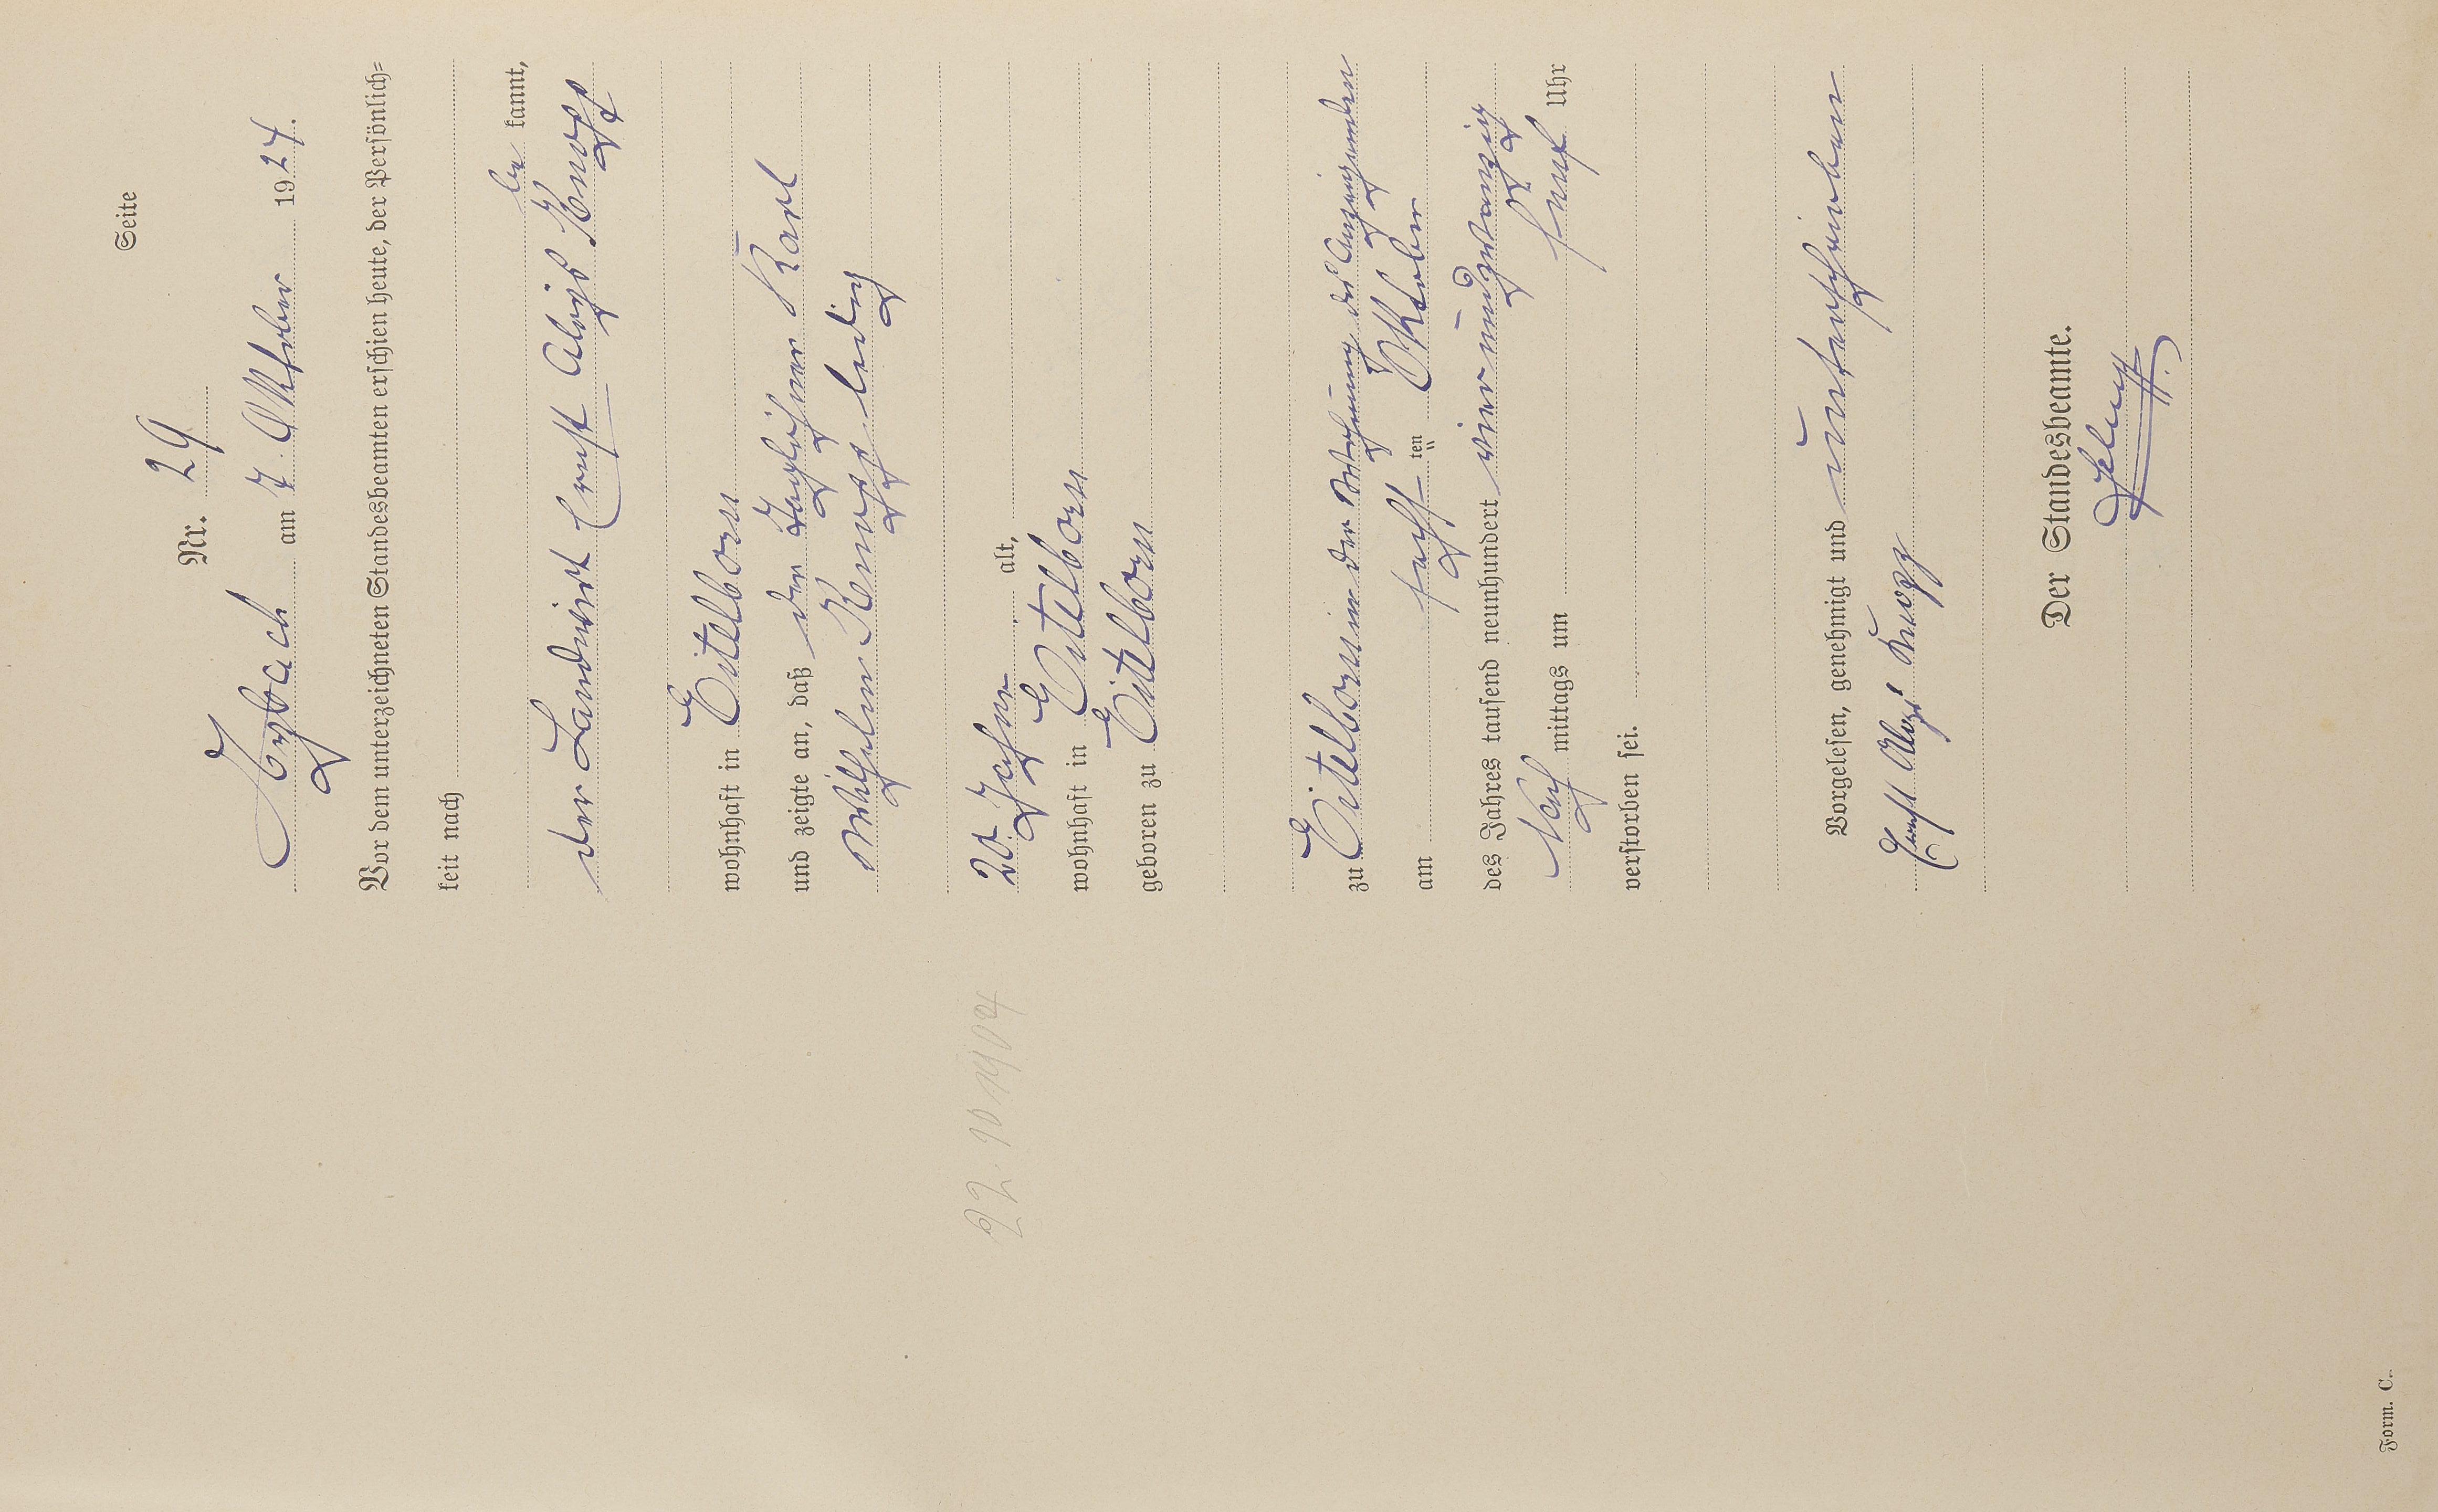 Seite
Nr. 29
am 7. Oktober 1924.
Vor dem unterzeichneten Standesbeamten erschien heute, der Persönlich-
keit nach
be kannt,
der Landwirt Ernst Aloys Knopp
wohnhaft in Eitelborn
und zeigte an, daß der Taglöhner Karl
Wilhelm Knopp ledig
20 Jahre alt,
22.10 1904
wohnhaft in Eitelborn
geboren zu Eitelborn
zu Eitelborn in der Wohnung des Anzeigenden
am sechs ten Oktober
des Jahres tausend neunhundert vierundzwanzig
Nach mittags um fünf Uhr
verstorben sei.
Vorgelesen, genehmigt und unterschrieben
Ernst Aloys Knopp
Der Standesbeamte.
Form. C.